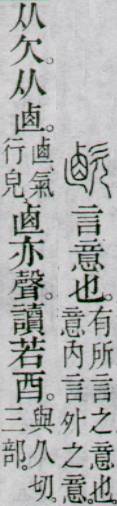 言意也。有所言之意也。意內言外之意。
从欠。从卥。卥氣行皃。卥亦聲。讀若酉。與久切。三部。